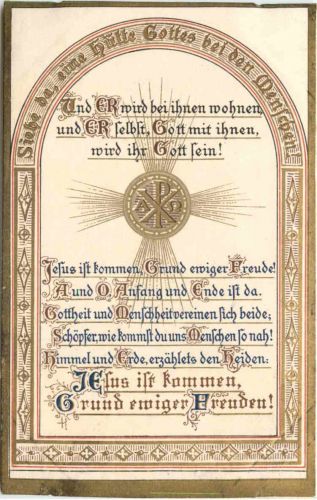 Siehe da, eine Hütte Gottes bei den Menschen!
Und ER wird bei ihnen wohnen,
und ER selbst, Gott mit ihnen,
wird ihr Gott sein!
A Ω
Jesus ist kommen, Grund ewiger Freude!
A und O, Anfang und Ende ist da.
Gottheit und Menschheit vereinen sich beide;
Schöpfer, wie kommst du uns Menschen so nah!
Himmel und Erde, erzählets den Heiden:
JEsus ist kommen,
Grund ewiger Freuden!